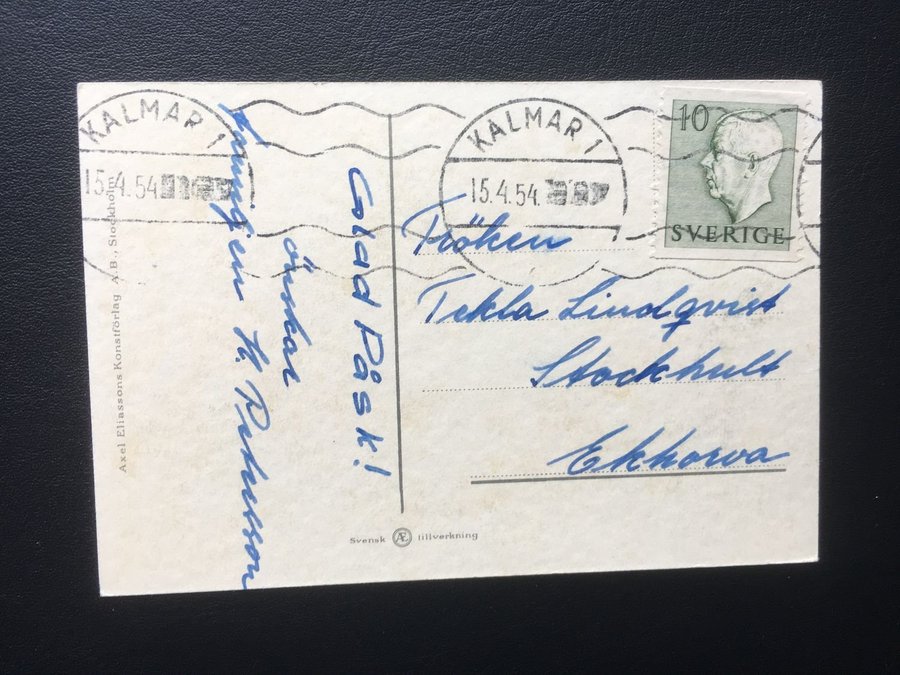 KALMAR 1
15.4.54
KALMAR 1
15.4.54.
10
SVERIGE
Glad Påsk!
önskar
Fröken
Tekla Lindqvist
Stockhult
Ekhorva
Axel Eliassons Konstförlag A.B., Stockholm
Svensk Æ tillverkning